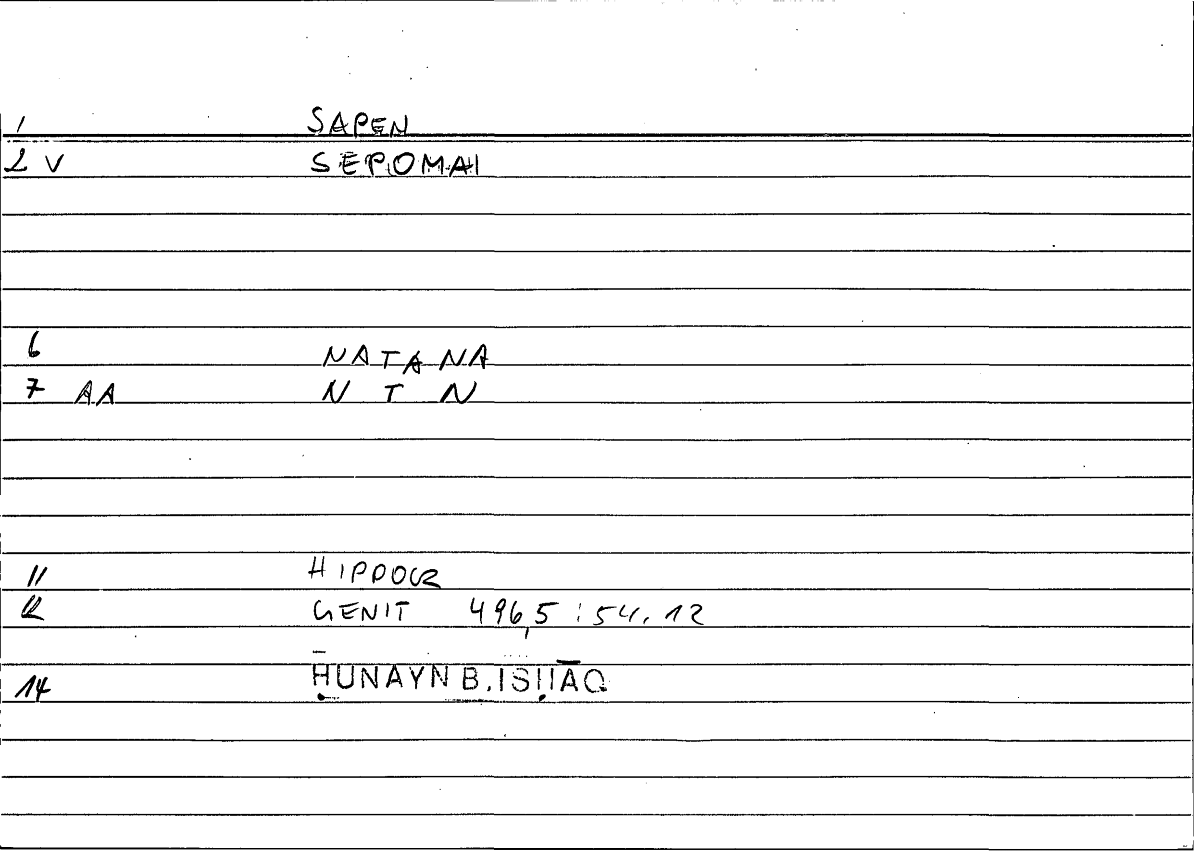 1 SAPEN
2 V SEPOMAI
6 NATANA
7 AA N T N
11 HIPPOCR
12 GENIT 496,5 : 54.12
14 ḤUNAYN B. ISḤĀQ